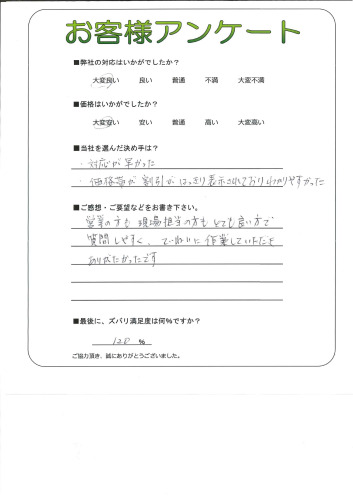 お客様アンケート
■弊社の対応はいかがでしたか?
大変良い 良い 普通 不満 大変不満
■価格はいかがでしたか?
大変安い 安い 普通 高い 大変高い
■当社を選んだ決め手は?
・対応が早かった
・価格等が割引がはっきり表示されておりわかりやすかった
■ご感想・ご要望などをお書き下さい。
営業の方も現場担当の方もとても良い方で
質問しやすく、ていねいに作業していただき
ありがたかったです
■最後に、ズバリ満足度は何%ですか?
120 %
ご協力頂き、誠にありがとうございました。